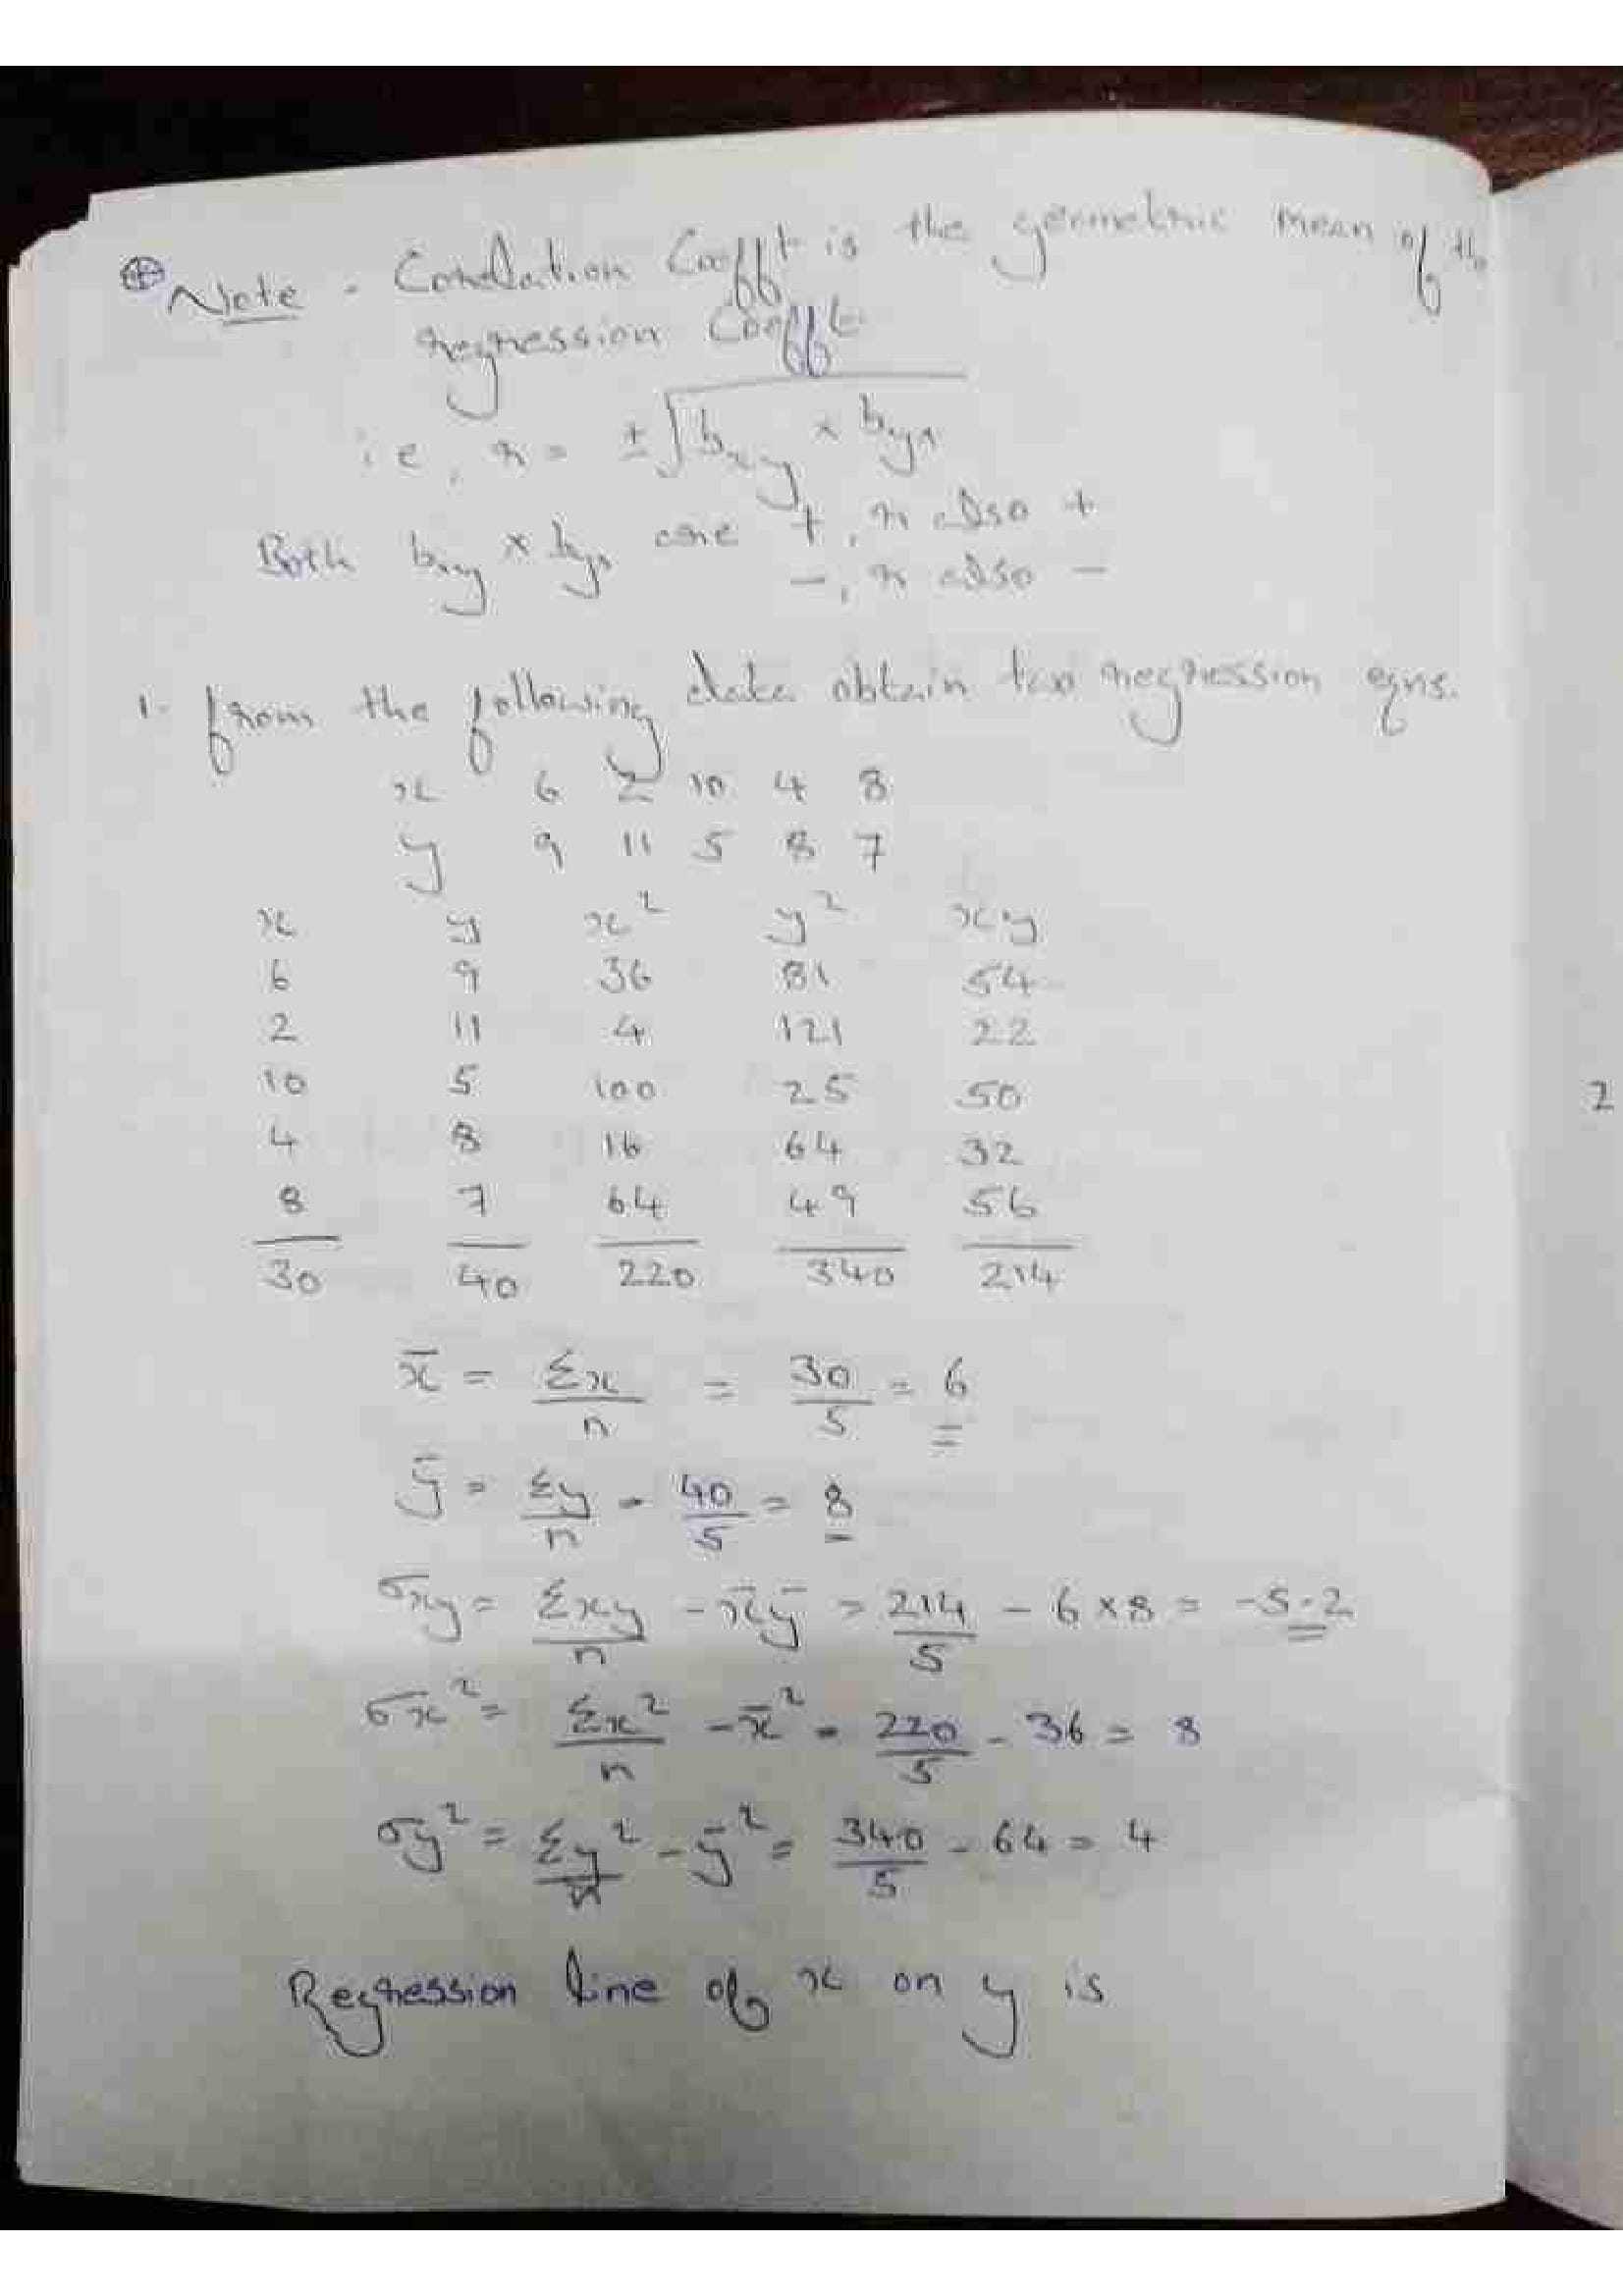 ⊕ Note - Correlation Coefft is the geometric mean of the
regression Coefft
i.e, r = ±√(bxy × byx)
Both bxy × byx are +, r also +
-, r also -
1. From the following data obtain two regression eqns.
x 6 2 10 4 8
y 9 11 5 8 7
x y x² y² xy
6 9 36 81 54
2 11 4 121 22
10 5 100 25 50
4 8 16 64 32
8 7 64 49 56
30 40 220 340 214
x̄ = Σx/n = 30/5 = 6
ȳ = Σy/n = 40/5 = 8
σxy = Σxy/n - x̄ȳ = 214/5 - 6×8 = -5.2
σx² = Σx²/n - x̄² = 220/5 - 36 = 8
σy² = Σy²/n - ȳ² = 340/5 - 64 = 4
Regression line of x on y is
2